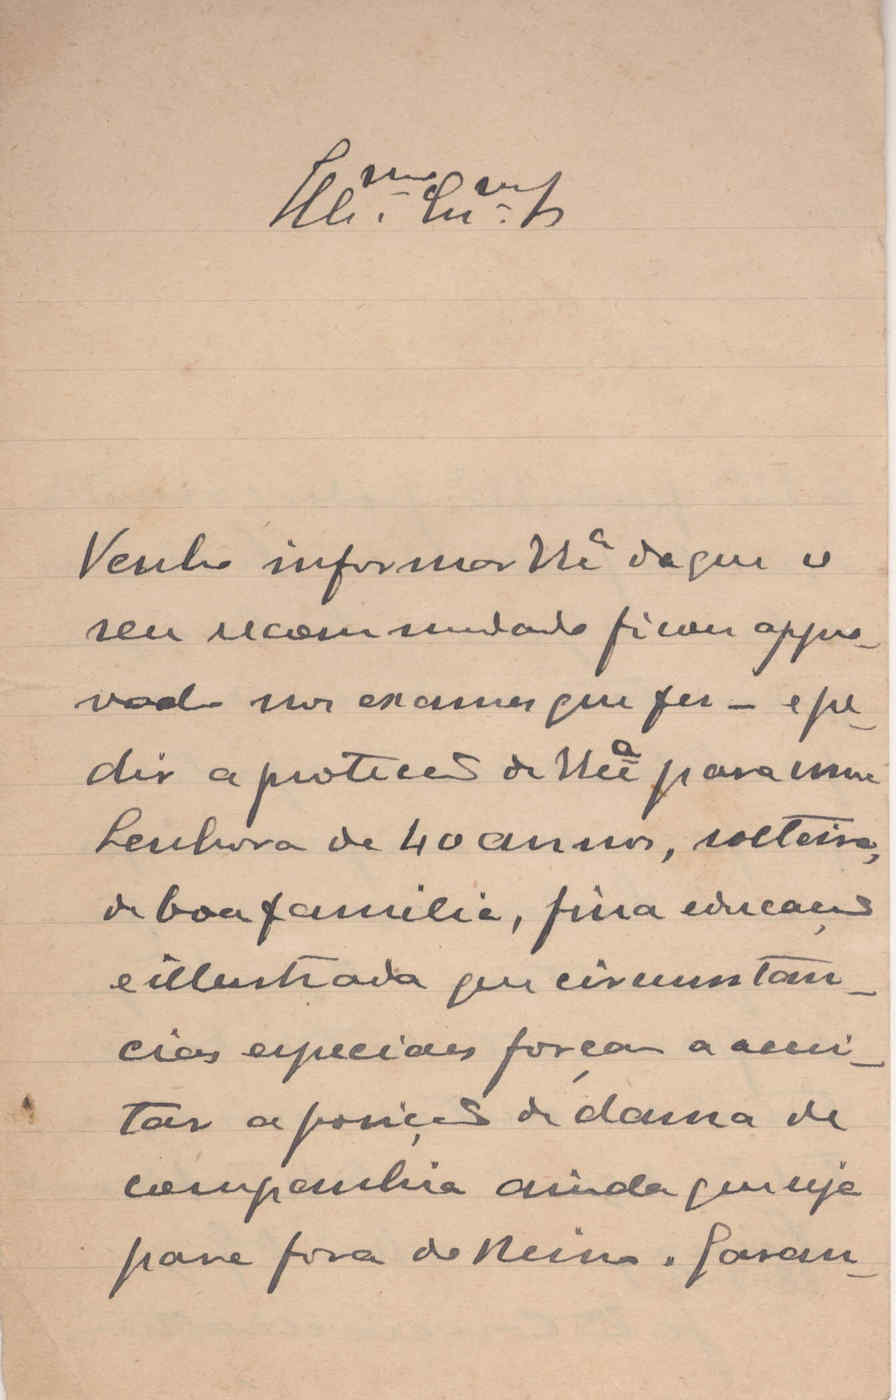 Ill.mo Em.mo Sr
Venho informar V Ex.a de que o
seu recommendado ficou appro-
vado nos exames que fez - e pe-
dir a protecção de V Ex.a para uma
Senhora de 40 annos, solteira,
de boa familia, fina educação
e illustrada que circumstan-
cias especiaes forção a accei-
tar a posição de dama de
companhia ainda que seja
para fora do Reino. Garan-